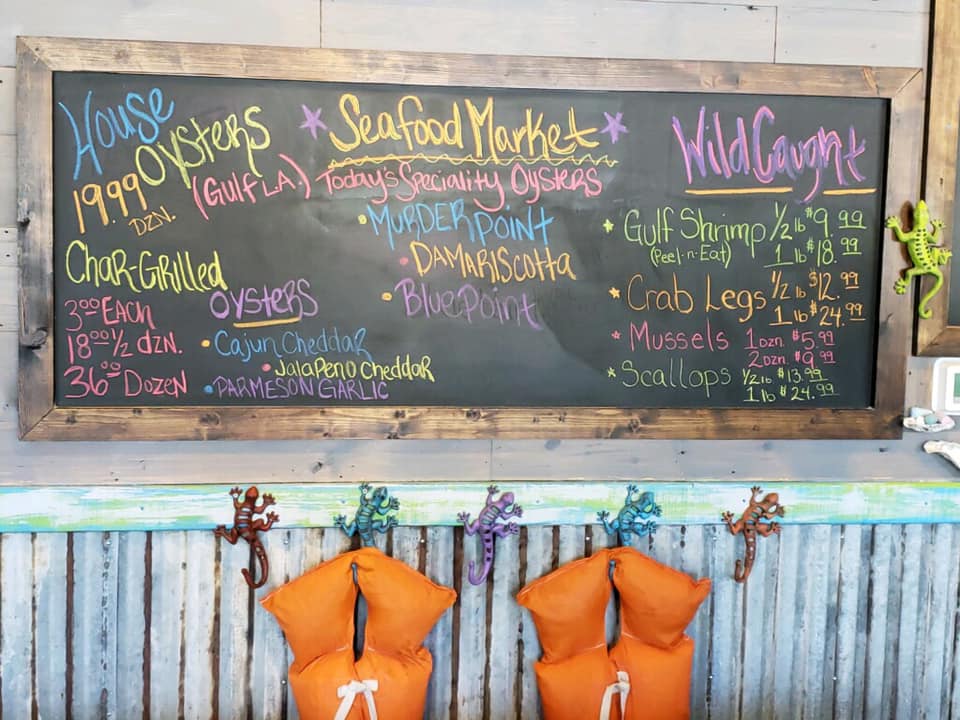 House
Oysters
19.99
DZN.
(Gulf L.A.)
Char-Grilled
Oysters
3.00 Each
18.00 1/2 dzn.
36.00 Dozen
• Cajun Cheddar
• Jalapeno Cheddar
• Parmeson Garlic
Seafood Market
Today's Speciality Oysters
• Murder Point
• Damariscotta
• Blue Point
Wild Caught
* Gulf Shrimp 1/2 lb $9.99
(Peel-n-Eat) 1 lb $18.99
* Crab Legs 1/2 lb $12.99
1 lb $24.99
* Mussels 1 Dzn $5.99
2 Dzn $9.99
* Scallops 1/2 lb $13.99
1 lb $24.99